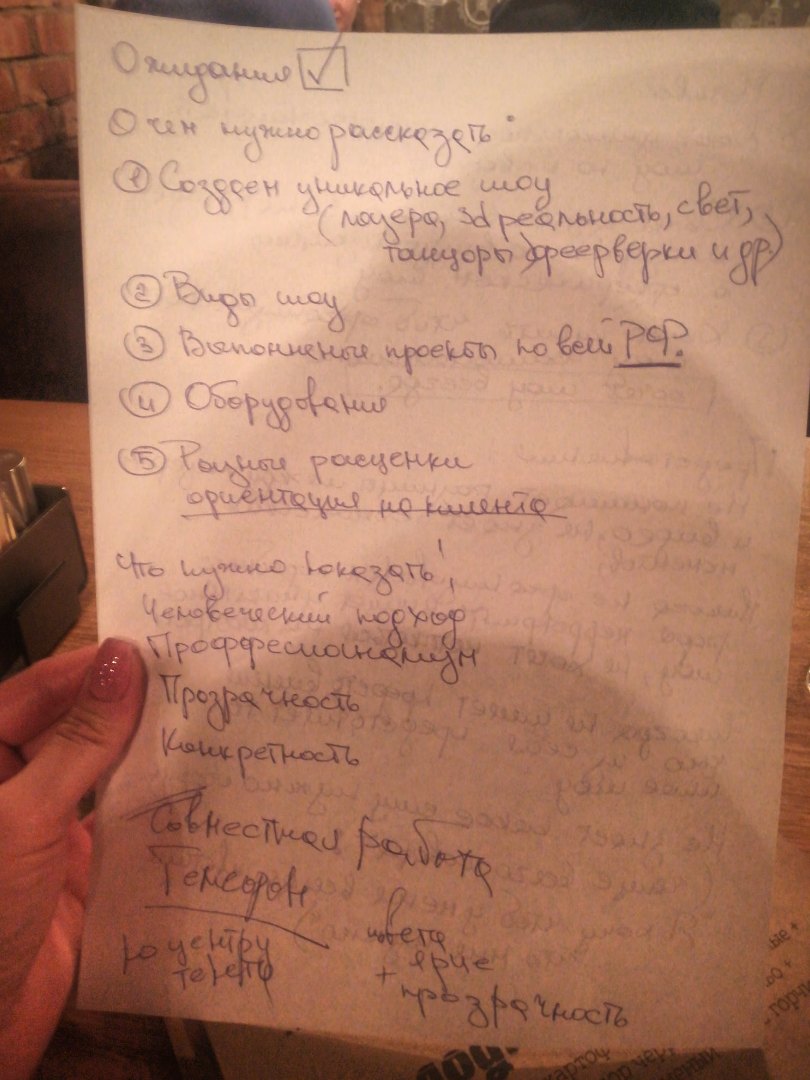 Ожидания
Очен нужно рассказать
1 Создаем уникальное шоу
(лазера, 3d реальность, свет,
танцоры, фееерверки и др.)
2 Виды шоу
3 Выполненные проекты по всей РФ.
4 Оборудования
5 Разные расценки
ориентация на клиента
Что нужно показать!
Человеческий подход
Проффесионализм
Прозрачность
Конкретность
Совместная работа
по центру
текста
цвета
ярче
+ прозрачность